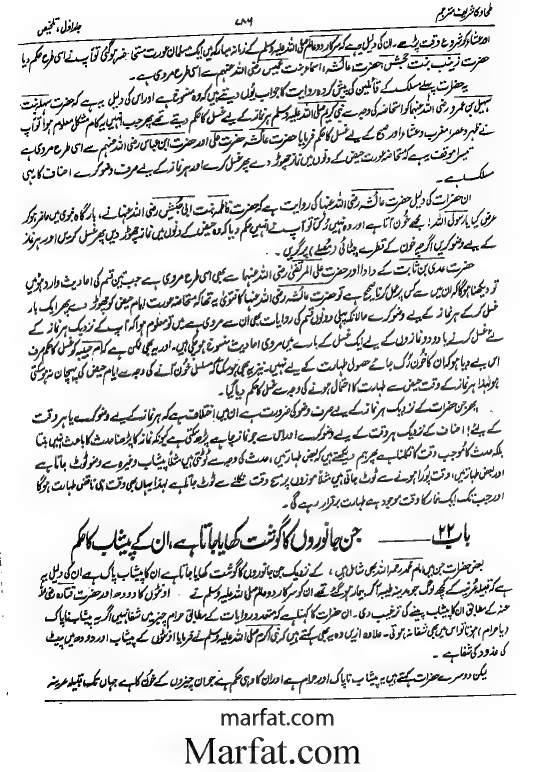 طحاوی شریف مترجم ۷۸۶ جلد اول، تلخیص
اور عشاء کو شروع وقت پڑھے۔ ان کی دلیل یہ ہے کہ سرکار دو عالم صلی اللہ علیہ وسلم کے زمانہ مبارکہ میں ایک مسلمان عورت مستحاضہ ہوگئی تو آپ نے اسی طرح حکم دیا
حضرت زینب بنت جحش، حضرت عائشہ، اسماء بنت عمیس رضی اللہ عنہم سے اسی طرح مروی ہے۔
یہ حضرات پہلے مسلک کے قائلین کی پیش کردہ روایت کا جواب یوں دیتے ہیں کہ وہ منسوخ ہے اور اس کی دلیل یہ ہے کہ حضرت سہلہ بنت
سہیل بن عمرو رضی اللہ عنہا کو استحاضہ کی وجہ سے نبی کریم صلی اللہ علیہ وسلم ہر نماز کے لیے غسل کا حکم دیتے تھے پھر جب انہیں یہ کام مشکل معلوم ہوا تو آپ
نے ظہر و عصر، مغرب و عشاء اور صبح کے لیے غسل کا حکم فرمایا حضرت عائشہ، حضرت علی اور حضرت ابن عباس رضی اللہ عنہم سے اسی طرح مروی ہے
تیسرا موقف یہ ہے کہ مستحاضہ عورت حیض کے دنوں میں نماز چھوڑ دے پھر غسل کرے اور ہر نماز کے لیے صرف وضو کرے احناف کا یہی
مسلک ہے۔
ان حضرات کی دلیل حضرت عائشہ رضی اللہ عنہا کی روایت ہے کہ حضرت فاطمہ بنت ابی حبیش رضی اللہ عنہا نے، بارگاہ نبوی میں حاضر ہو کر
عرض کیا یا رسول اللہ! مجھے خون آتا ہے اور وہ نہیں رکتا تو آپ نے انہیں حکم دیا کہ وہ حیض کے دنوں میں نماز چھوڑ دیں پھر غسل کریں اور ہر نماز
کے لیے وضو کریں اگرچہ خون کے قطرے چٹائی پر گریں۔
حضرت عدی بن ثابت کے دادا اور حضرت علی المرتضیٰ رضی اللہ عنہما سے بھی اسی طرح مروی ہے جب تین قسم کی احادیث وارد ہوئیں
تو دیکھنا ہوگا کہ ان میں سے کس پر عمل کرنا صحیح ہے تو حضرت عائشہ رضی اللہ عنہا کا فتویٰ یہ تھا کہ مستحاضہ عورت ایام حیض کو چھوڑ دے پھر ایک بار
غسل کر کے ہر نماز کے لیے وضو کرے حالانکہ پہلی دونوں قسم کی روایات بھی ان سے مروی ہے میں تو معلوم ہوا کہ آپ کے نزدیک ہر نماز کے
لیے غسل کرنے یا دو دو نمازوں کے لیے ایک غسل کے بارے میں مروی احادیث منسوخ ہوگی ہیں۔ اور یہ بھی ممکن ہے کہ ام حبیبہ کو غسل کا حکم صرف
اس لیے دیا ہو کہ ان کا خون رک جائے حصول طہارت کے لیے نہیں۔ نیز یہ بھی ہو سکتا کہ مسلسل خون آنے کی وجہ سے ایام حیض کی پہچان نہ ہو سکتی
ہو لہذا ہر نماز کے وقت حیض سے طہارت کا احتمال ہونے کی وجہ سے غسل کا حکم دیا گیا۔
پھر جن حضرات کے نزدیک ہر نماز کے لیے صرف وضو کی ضرورت ہے ان میں اختلاف ہے کہ ہر نماز کے لیے وضو کرے یا ہر وقت
کے لیے! احناف کے نزدیک ہر وقت کے لیے وضو کرے اور اس سے جو نماز چاہے پڑھ سکتی ہے کیونکہ نماز کا پڑھنا حدث کا باعث نہیں بنتا
بلکہ حدث کا موجب وقت کا نکلنا ہے پھر ہم دیکھتے ہیں بعض طہارتیں، حدث کی وجہ سے ٹوٹتی ہیں مثلاً پیشاب وغیرہ سے وضو ٹوٹ جاتا ہے
اور بعض طہارتیں، وقت پورا ہونے سے ٹوٹ جاتی ہیں مثلاً موزوں پر مسح وقت نکلنے سے ٹوٹ جاتا ہے لہذا یہاں بھی وقت ہی ناقض طہارت ہوگا
اور جب تک ایک نماز کا وقت موجود ہے طہارت برقرار رہے گی۔
باب ۲۲ — جن جانوروں کا گوشت کھایا جاتا ہے، ان کے پیشاب کا حکم
بعض حضرات جن میں امام محمد رحمہ اللہ بھی شامل ہیں، کے نزدیک جن جانوروں کا گوشت کھایا جاتا ہے ان کا پیشاب پاک ہے ان کی دلیل یہ
ہے کہ قبیلہ عرینہ کے کچھ لوگ جو مدینہ طیبہ آکر بیمار ہو گئے تھے ان کو سرکار دو عالم صلی اللہ علیہ وسلم نے اونٹوں کا دودھ اور حضرت قتادہ رضی اللہ
عنہ کے مطابق ان کا پیشاب پینے کی ترغیب دی۔ ان حضرات کا کہنا ہے کہ متعدد روایات کے مطابق حرام چیز میں شفا نہیں اگر یہ پیشاب ناپاک
یا حرام ہوتا تو اس میں بھی شفا نہ ہوتی۔ علاوہ ازیں وہ یہ بھی کہتے ہیں کہ نبی اکرم صلی اللہ علیہ وسلم نے فرمایا اونٹوں کے پیشاب اور دودھ میں پیٹ
کی کی شفا ہے۔
لیکن دوسرے حضرات کہتے ہیں یہ پیشاب ناپاک اور حرام ہے اور ان کا وہی حکم ہے جو ان چیزوں کے خون کا ہے جہاں تک قبیلہ عرینہ
marfat.com
Marfat.com